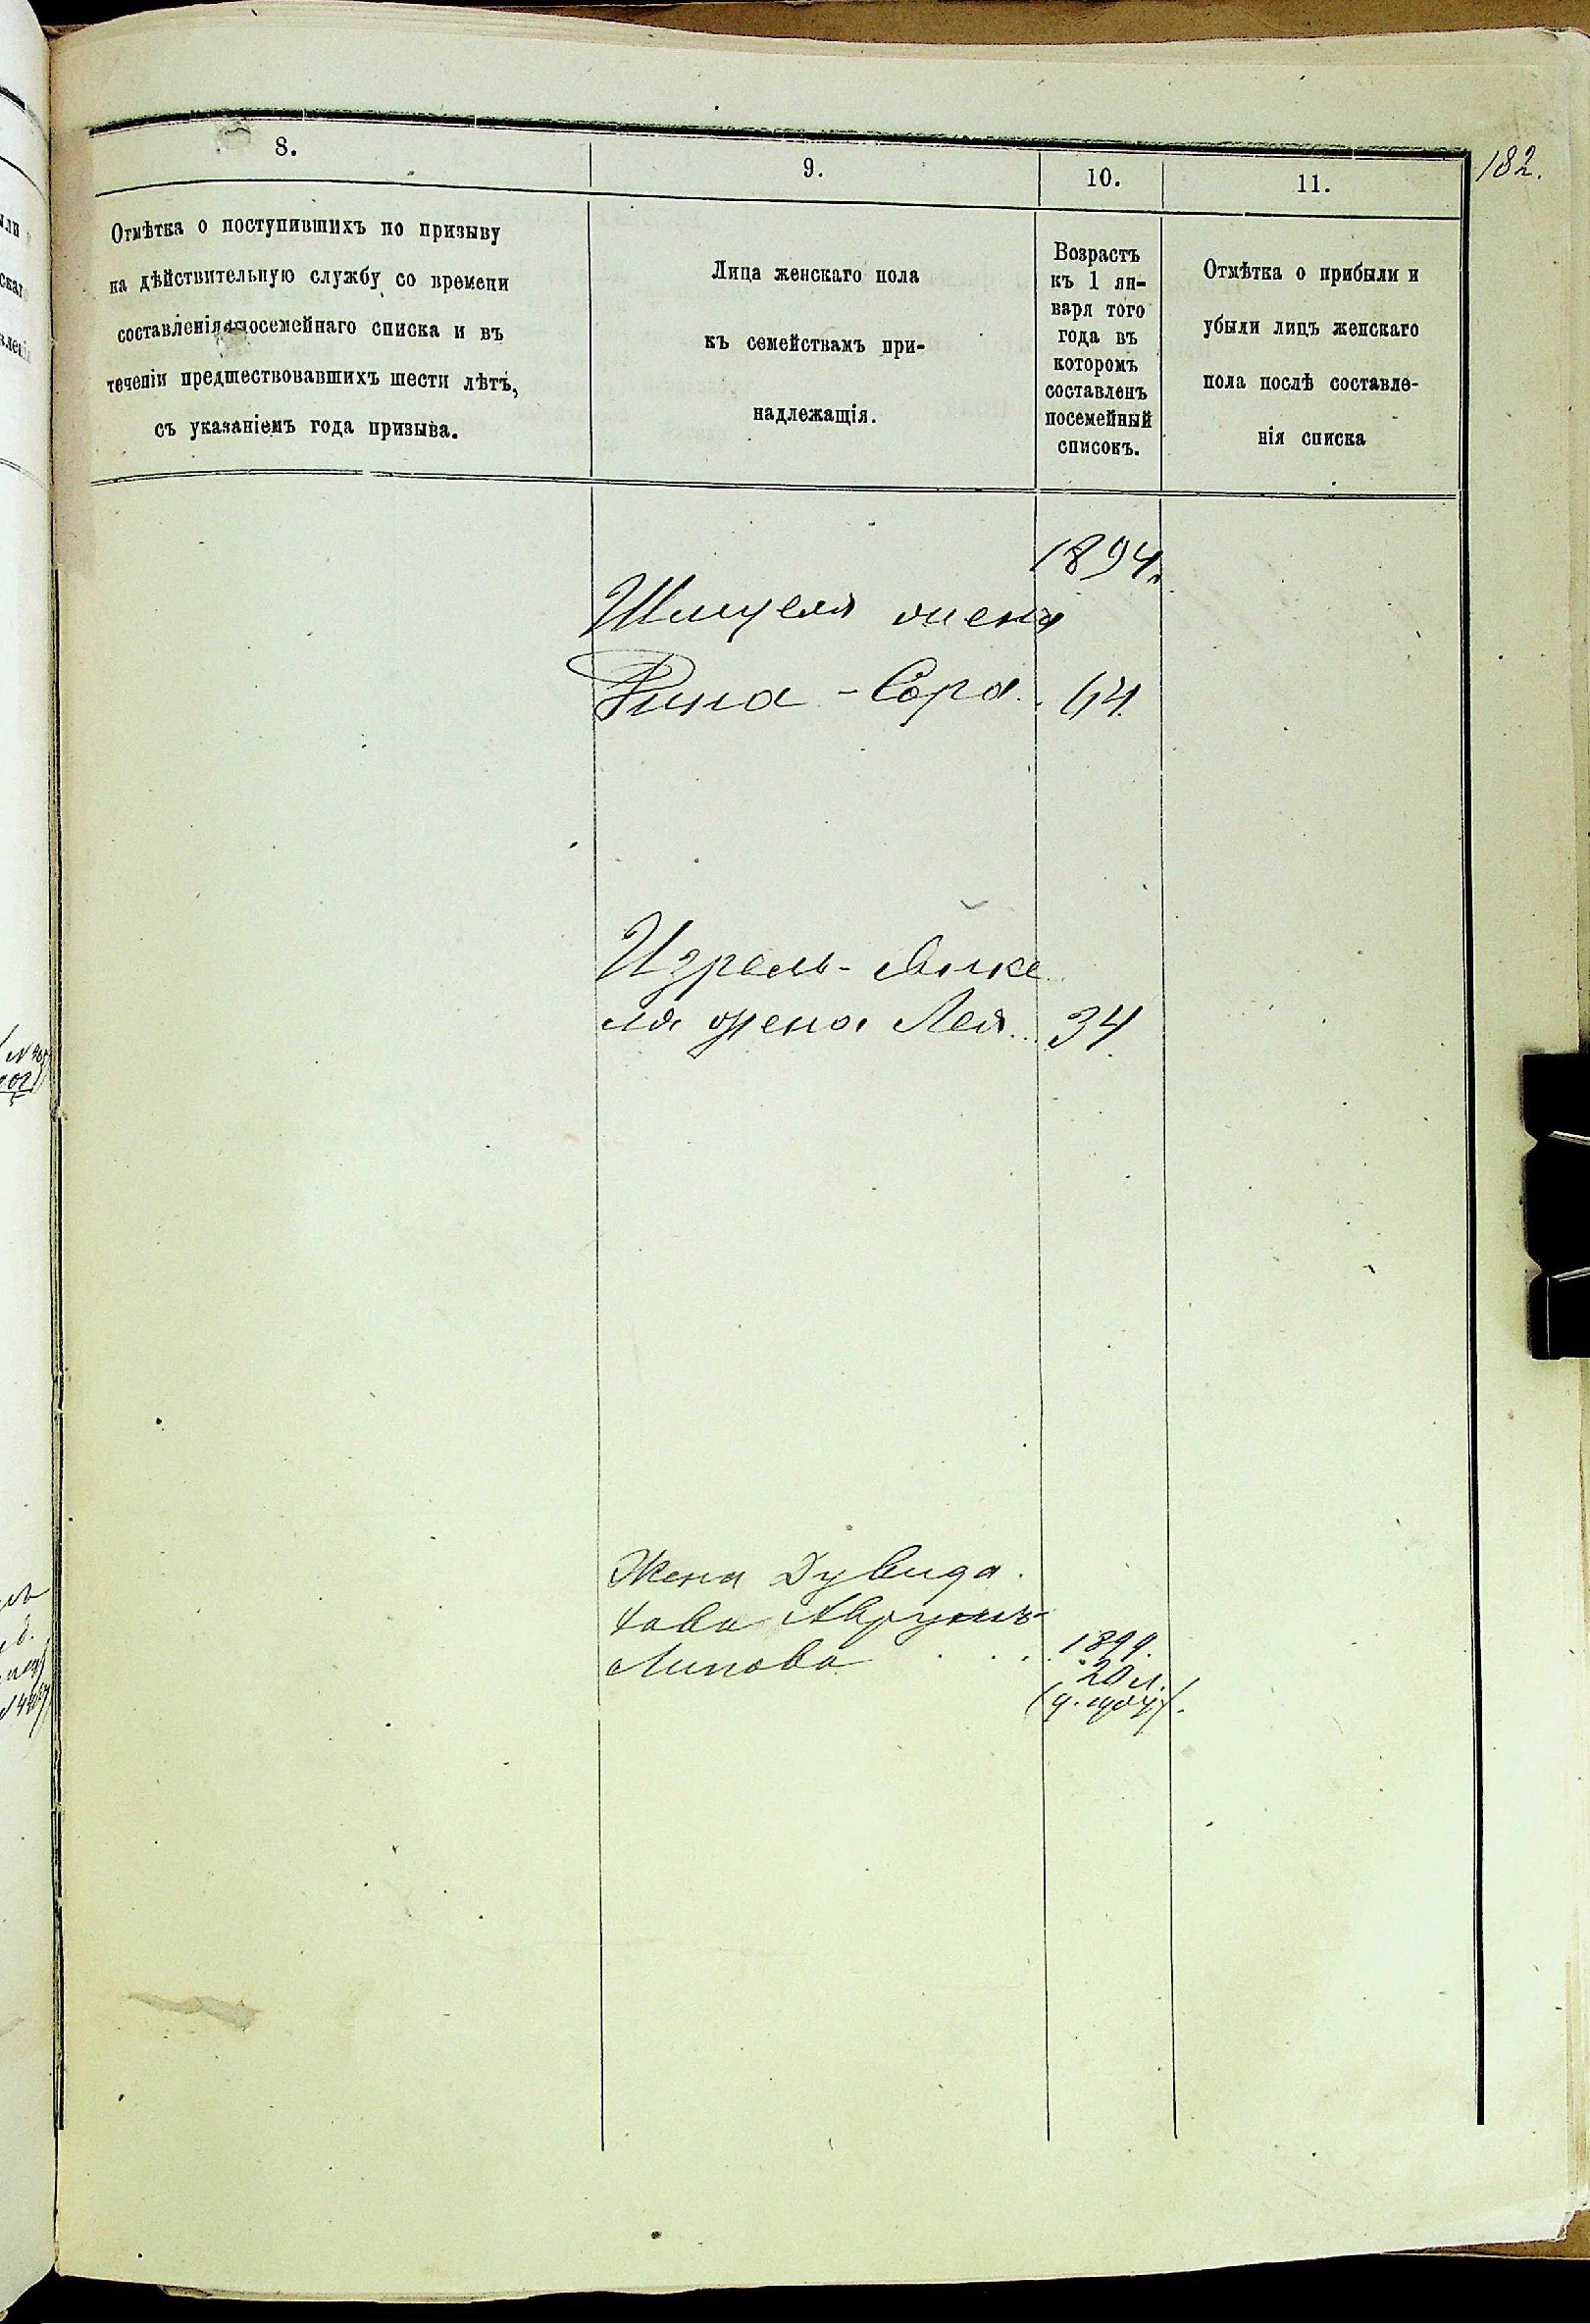 182.
8.
9.
10.
11.
Отмѣтка о поступившихъ по призыву
на дѣйствительную службу со времени
составленія посемейнаго списка и въ
теченіи предшествовавшихъ шести лѣтъ,
съ указаніемъ года призыва.
Лица женскаго пола
къ семействамъ при-
надлежащія.
Возрастъ
къ 1 ян-
варя того
года въ
которомъ
составленъ
посемейный
списокъ.
Отмѣтка о прибыли и
убыли лицъ женскаго
пола послѣ составле-
нія списка
1894.
Шмуеля жена
Рина - Сора. 64.
Изрель-
ля жена Лея.. 34.
Жена Дувида.
Хава
Липова . . . 1899.
20 л.